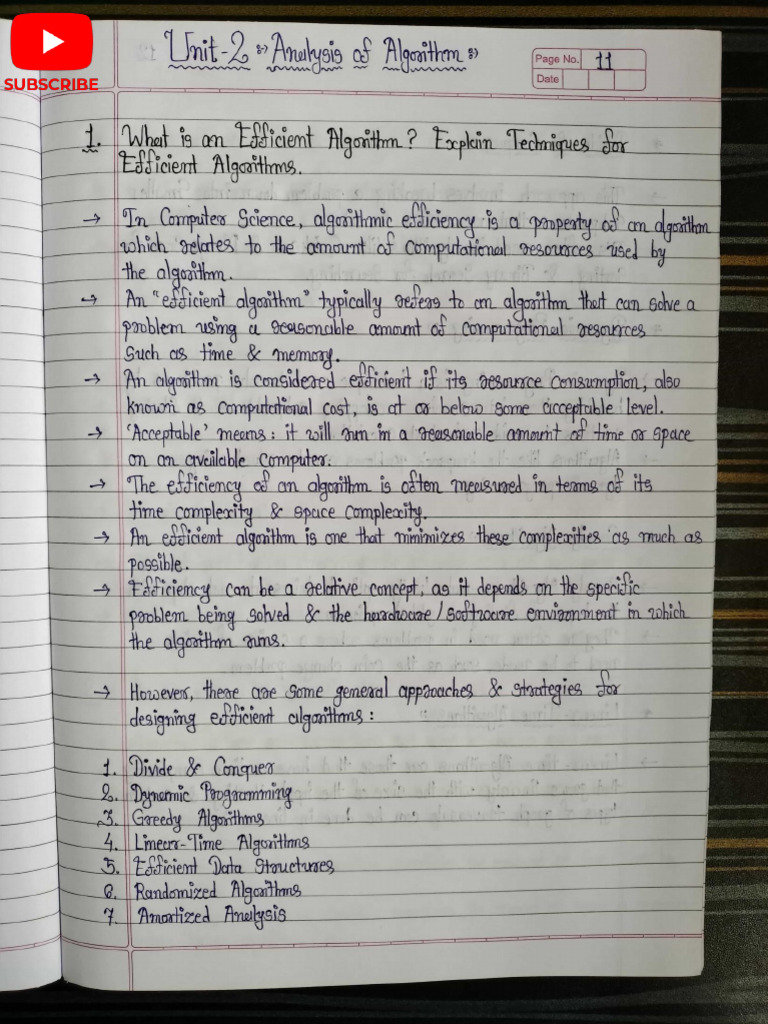 SUBSCRIBE
Unit-2 :- Analysis of Algorithm :-
Page No. 11
Date
1. What is an Efficient Algorithm? Explain Techniques for
Efficient Algorithms.
→ In Computer Science, algorithmic efficiency is a property of an algorithm
which relates to the amount of computational resources used by
the algorithm.
→ An "efficient algorithm" typically refers to an algorithm that can solve a
problem using a reasonable amount of computational resources
such as time & memory.
→ An algorithm is considered efficient if its resource consumption, also
known as computational cost, is at or below some acceptable level.
→ 'Acceptable' means: it will run in a reasonable amount of time or space
on an available computer.
→ The efficiency of an algorithm is often measured in terms of its
time complexity & space complexity.
→ An efficient algorithm is one that minimizes these complexities as much as
possible.
→ Efficiency can be a relative concept, as it depends on the specific
problem being solved & the hardware/software environment in which
the algorithm runs.
→ However, there are some general approaches & strategies for
designing efficient algorithms:
1. Divide & Conquer
2. Dynamic Programming
3. Greedy Algorithms
4. Linear-Time Algorithms
5. Efficient Data Structures
6. Randomized Algorithms
7. Amortized Analysis